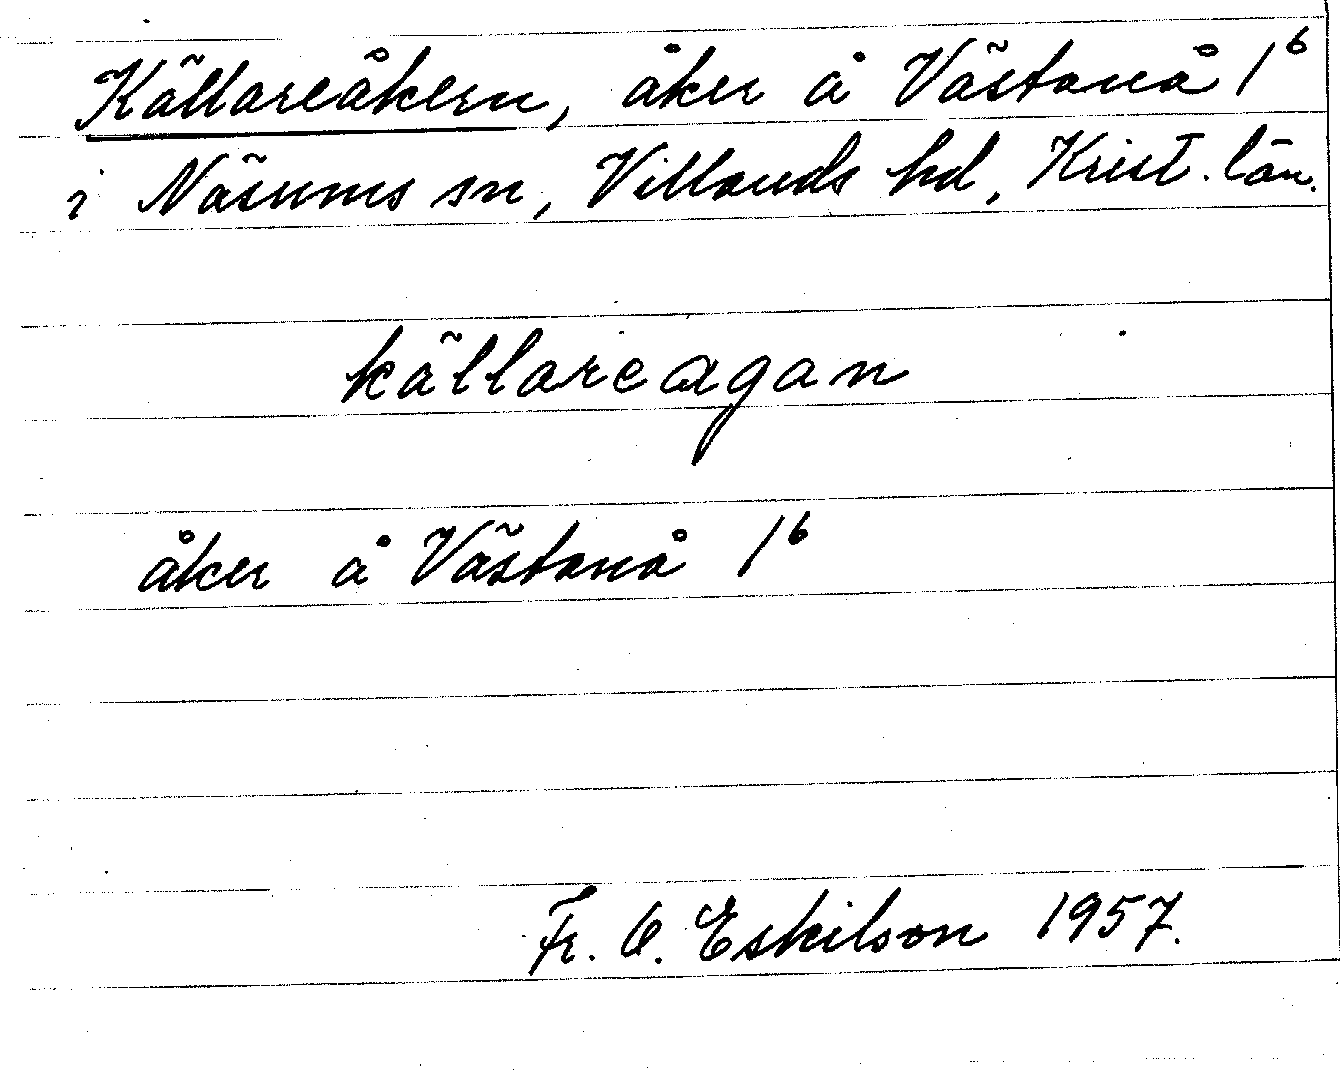 Källareåkern, åker å Västanå 1⁶
i Näsums sn, Villands hd, Krist. län.
källareagan
åker å Västanå 1⁶
Fr. O. Eskilson 1957.